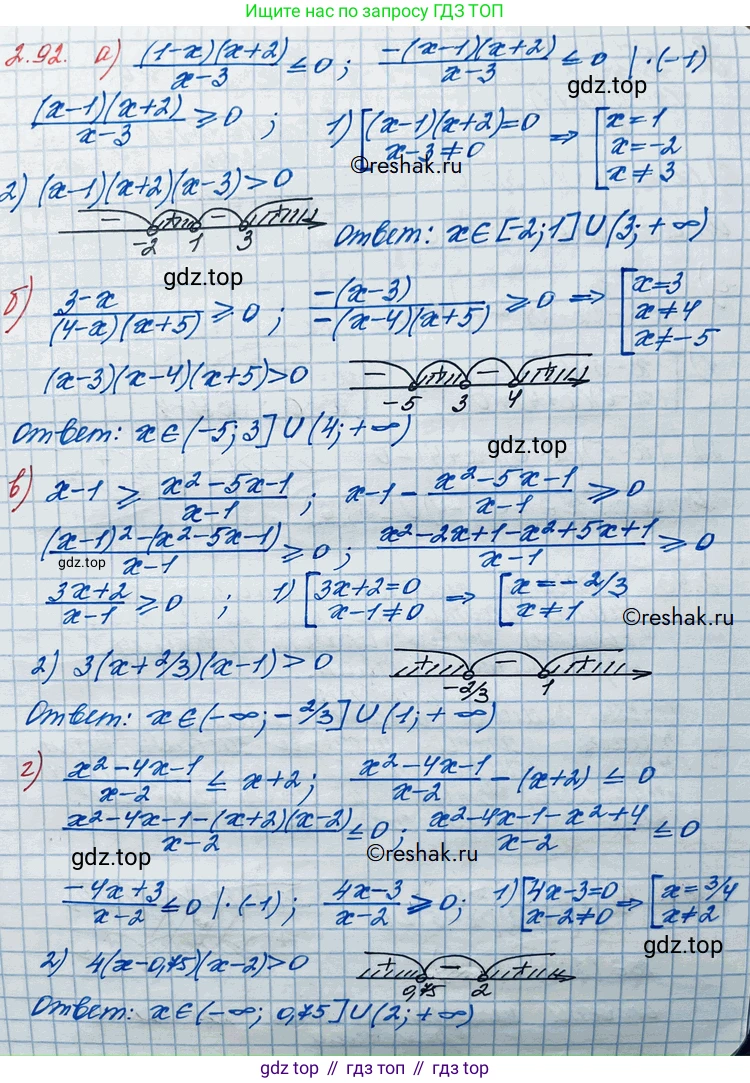 Ищите нас по запросу ГДЗ ТОП
2.92. а) (1-x)(x+2)/(x-3) ≤ 0 ; -(x-1)(x+2)/(x-3) ≤ 0 | ·(-1)
gdz.top
(x-1)(x+2)/(x-3) ≥ 0 ; 1) [(x-1)(x+2)=0 x-3≠0 => [x=1 x=-2 x≠3
©reshak.ru
2) (x-1)(x+2)(x-3)>0
- + - + -2 1 3
Ответ: x∈[-2;1]∪(3;+∞)
gdz.top
б) (3-x)/((4-x)(x+5)) ≥ 0 ; -(x-3)/(-(x-4)(x+5)) ≥ 0 => [x=3 x≠4 x≠-5
(x-3)(x-4)(x+5)>0 - + - + -5 3 4
Ответ: x∈(-5;3]∪(4;+∞)
gdz.top
в) x-1 ≥ (x²-5x-1)/(x-1) ; x-1-(x²-5x-1)/(x-1) ≥ 0
((x-1)²-(x²-5x-1))/(x-1) ≥ 0 ; (x²-2x+1-x²+5x+1)/(x-1) ≥ 0
gdz.top
(3x+2)/(x-1) ≥ 0 ; 1) [3x+2=0 x-1≠0 => [x=-2/3 x≠1
©reshak.ru
2) 3(x+2/3)(x-1)>0 + - + -2/3 1
Ответ: x∈(-∞;-2/3]∪(1;+∞)
г) (x²-4x-1)/(x-2) ≤ x+2 ; (x²-4x-1)/(x-2) - (x+2) ≤ 0
(x²-4x-1-(x+2)(x-2))/(x-2) ≤ 0 ; (x²-4x-1-x²+4)/(x-2) ≤ 0
gdz.top ©reshak.ru
(-4x+3)/(x-2) ≤ 0 | ·(-1) ; (4x-3)/(x-2) ≥ 0 ; 1) [4x-3=0 x-2≠0 => [x=3/4 x≠2
gdz.top
2) 4(x-0,75)(x-2)>0 + - + 0,75 2
Ответ: x∈(-∞; 0,75]∪(2;+∞)
gdz.top // gdz.top // gdz.top // gdz.top